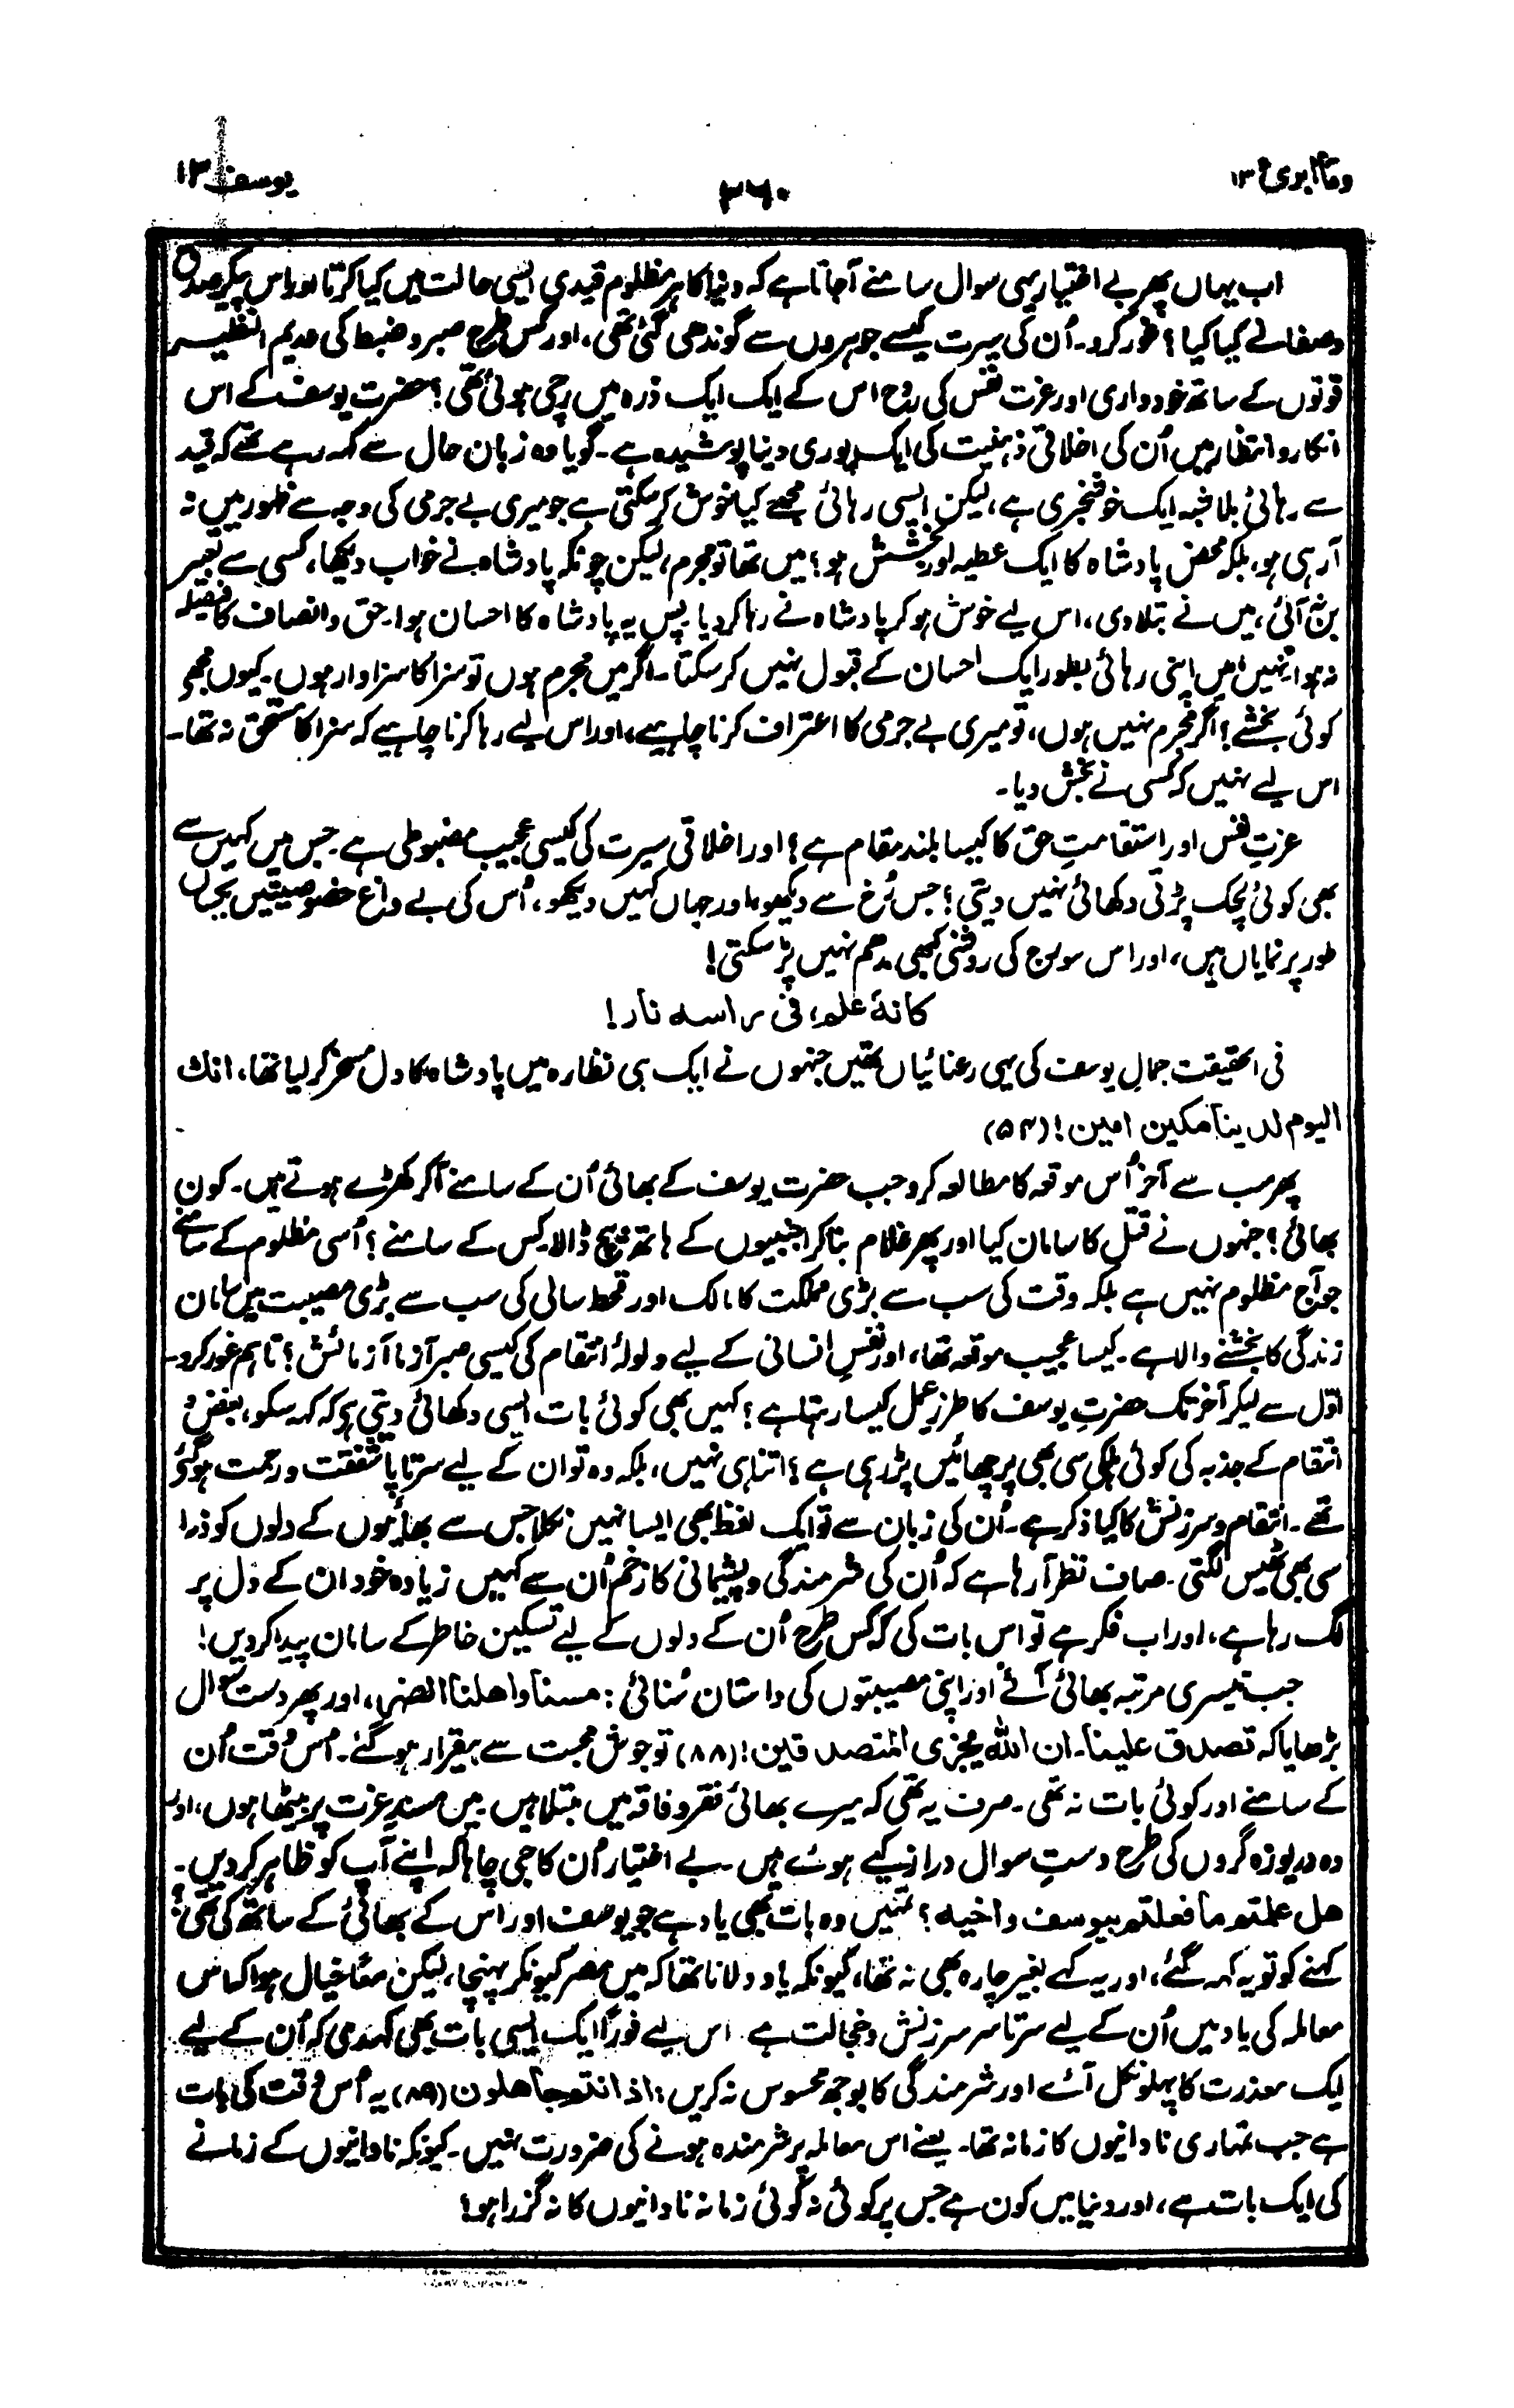 وما ابرئ ۱۳
۳۶۰
یوسف ۱۲
اب یہاں پھر بے اختیار یہی سوال سامنے آجاتا ہے کہ دنیا کا ہر مظلوم قیدی ایسی حالت میں کیا کرتا اور اس پیکرِ صدق
وصفا نے کیا کیا؟ غور کرو۔ اُن کی سیرت کیسے جوہروں سے گوندھی گئی تھی، اور کس طرح صبر و ضبط کی عدیم النظیر
قوتوں کے ساتھ خودداری اور عزت نفس کی روح اس کے ایک ایک ذرہ میں رچی ہوئی تھی؟ حضرت یوسف کے اس
انکار و انتظار میں اُن کی اخلاقی ذہنیت کی ایک پوری دنیا پوشیدہ ہے۔ گویا وہ زبان حال سے کہہ رہے تھے کہ قید
سے رہائی بلاشبہ ایک خوشخبری ہے، لیکن ایسی رہائی مجھے کیا خوش کر سکتی ہے جو میری بے جرمی کی وجہ سے ظہور میں نہ
آرہی ہو، بلکہ محض پادشاہ کا ایک عطیہ اور بخشش ہو؟ میں تھا تو مجرم، لیکن چونکہ پادشاہ نے خواب دیکھا، کسی سے تعبیر
بن نہ آئی، میں نے بتلا دی، اس لیے خوش ہو کر پادشاہ نے رہا کر دیا پس یہ پادشاہ کا احسان ہوا۔ حق و انصاف کا فیصلہ
نہ ہوا نہیں میں اپنی رہائی بطور ایک احسان کے قبول نہیں کر سکتا۔ اگر میں مجرم ہوں تو سزا کا سزاوار ہوں۔ کیوں مجھے
کوئی بخشے؟ اگر مجرم نہیں ہوں، تو میری بے جرمی کا اعتراف کرنا چاہیے، اور اس لیے رہا کرنا چاہیے کہ سزا کا مستحق نہ تھا۔
اس لیے نہیں کہ کسی نے بخش دیا۔
عزتِ نفس اور استقامتِ حق کا کیسا بلند مقام ہے؟ اور اخلاقی سیرت کی کیسی عجیب مضبوطی ہے۔ جس میں کہیں سے
بھی کوئی لچک پڑتی دکھائی نہیں دیتی؟ جس رُخ سے دیکھو، اور جہاں کہیں دیکھو، اُس کی بے داغ خصوصیتیں یکساں
طور پر نمایاں ہیں، اور اس سورج کی روشنی کبھی مدھم نہیں پڑ سکتی!
کانهٗ علم، فی راسه نار!
فی الحقیقت جمالِ یوسف کی یہی رعنائیاں تھیں جنہوں نے ایک ہی نظارہ میں پادشاہ کا دل مسخر کر لیا تھا، انك
الیوم لدینا مکین امین! (۵۴)
پھر سب سے آخر اُس موقعہ کا مطالعہ کرو جب حضرت یوسف کے بھائی اُن کے سامنے آکر کھڑے ہوتے ہیں۔ کون
بھائی؟ جنہوں نے قتل کا سامان کیا اور پھر غلام بنا کر اجنبیوں کے ہاتھ بیچ ڈالا۔ کس کے سامنے؟ اُسی مظلوم کے سامنے
جو آج مظلوم نہیں ہے بلکہ وقت کی سب سے بڑی مملکت کا مالک اور قحط سالی کی سب سے بڑی مصیبت میں سامان
زندگی کا بخشنے والا ہے۔ کیسا عجیب موقعہ تھا، اور نفسِ انسانی کے لیے ولولۂ انتقام کی کیسی صبر آزما آزمائش؟ تاہم غور کرو۔
اوّل سے لیکر آخر تک حضرتِ یوسف کا طرزِ عمل کیسا رہتا ہے؟ کہیں بھی کوئی بات ایسی دکھائی دیتی ہے کہ کہہ سکو، بغض و
انتقام کے جذبہ کی کوئی ہلکی سی بھی پرچھائیں پڑ رہی ہے؟ اتنا ہی نہیں، بلکہ وہ تو ان کے لیے سرتاپا شفقت و رحمت ہو گئے
تھے۔ انتقام و سرزنش کا کیا ذکر ہے۔ اُن کی زبان سے تو ایک لفظ بھی ایسا نہیں نکلا جس سے بھائیوں کے دلوں کو ذرا
سی بھی ٹھیس لگتی۔ صاف نظر آ رہا ہے کہ اُن کی شرمندگی و پشیمانی کا زخم اُن سے کہیں زیادہ خود ان کے دل پر
لگ رہا ہے، اور اب فکر ہے تو اس بات کی کہ کس طرح اُن کے دلوں کے لیے تسکین خاطر کے سامان پیدا کر دیں!
جب تیسری مرتبہ بھائی آئے اور اپنی مصیبتوں کی داستان سُنائی: مسنا و اهلنا الضر، اور پھر دست سوال
بڑھایا کہ تصدق علینا۔ ان الله یجزی المتصدقین! (۸۸) تو جوش محبت سے بیقرار ہو گئے۔ اُس وقت اُن
کے سامنے اور کوئی بات نہ تھی۔ صرف یہ تھی کہ میرے بھائی فقر و فاقہ میں مبتلا ہیں۔ میں مسندِ عزت پر بیٹھا ہوں، اور
وہ دریوزہ گروں کی طرح دستِ سوال دراز کیے ہوئے ہیں۔ بے اختیار اُن کا جی چاہا کہ اپنے آپ کو ظاہر کر دیں۔
هل علمتم ما فعلتم بیوسف و اخیه؟ تمہیں وہ بات بھی یاد ہے جو یوسف اور اس کے بھائی کے ساتھ کی تھی؟
کہنے کو تو یہ کہہ گئے، اور یہ کہے بغیر چارہ بھی نہ تھا، کیونکہ یاد دلانا تھا کہ میں مصر کیونکر پہنچا، لیکن معًا خیال ہوا کہ اس
معاملہ کی یاد میں اُن کے لیے سرتاسر سرزنش و خجالت ہے اس لیے فوراً ایک ایسی بات بھی کہہ دی کہ اُن کے لیے
ایک معذرت کا پہلو نکل آئے اور شرمندگی کا بوجھ محسوس نہ کریں: اذ انتم جاهلون (۸۹) یہ اُس وقت کی بات
ہے جب تمہاری نادانیوں کا زمانہ تھا۔ یعنے اس معاملہ پر شرمندہ ہونے کی ضرورت نہیں۔ کیونکہ نادانیوں کے زمانے
کی ایک بات ہے، اور دنیا میں کون ہے جس پر کوئی نہ کوئی زمانہ نادانیوں کا نہ گزرا ہو؟